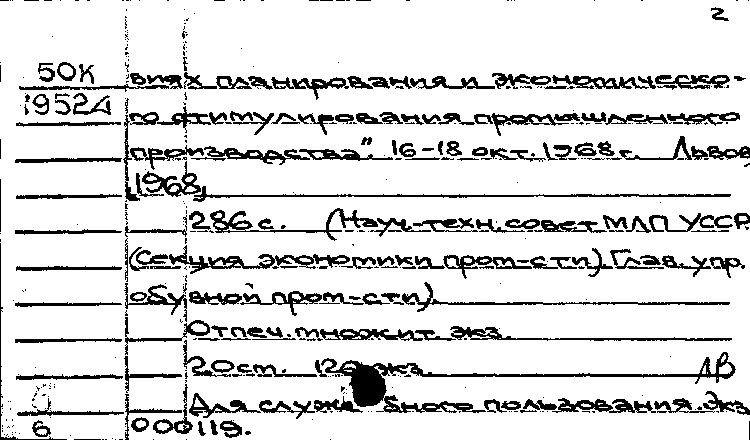 2
50К виях планирования и экономическо-
19524 го стимулирования промышленного
производства". 16-18 окт. 1968г. Львов,
[1968]
286 с. (Науч.-техн. совет МЛП УССР.
(Секция экономики пром-сти). Глав. упр.
обувной пром-сти).
Отпеч. множит. экз.
20 ст. 126 экз. ЛВ
Для служебного пользования. Экз.
6 000119.